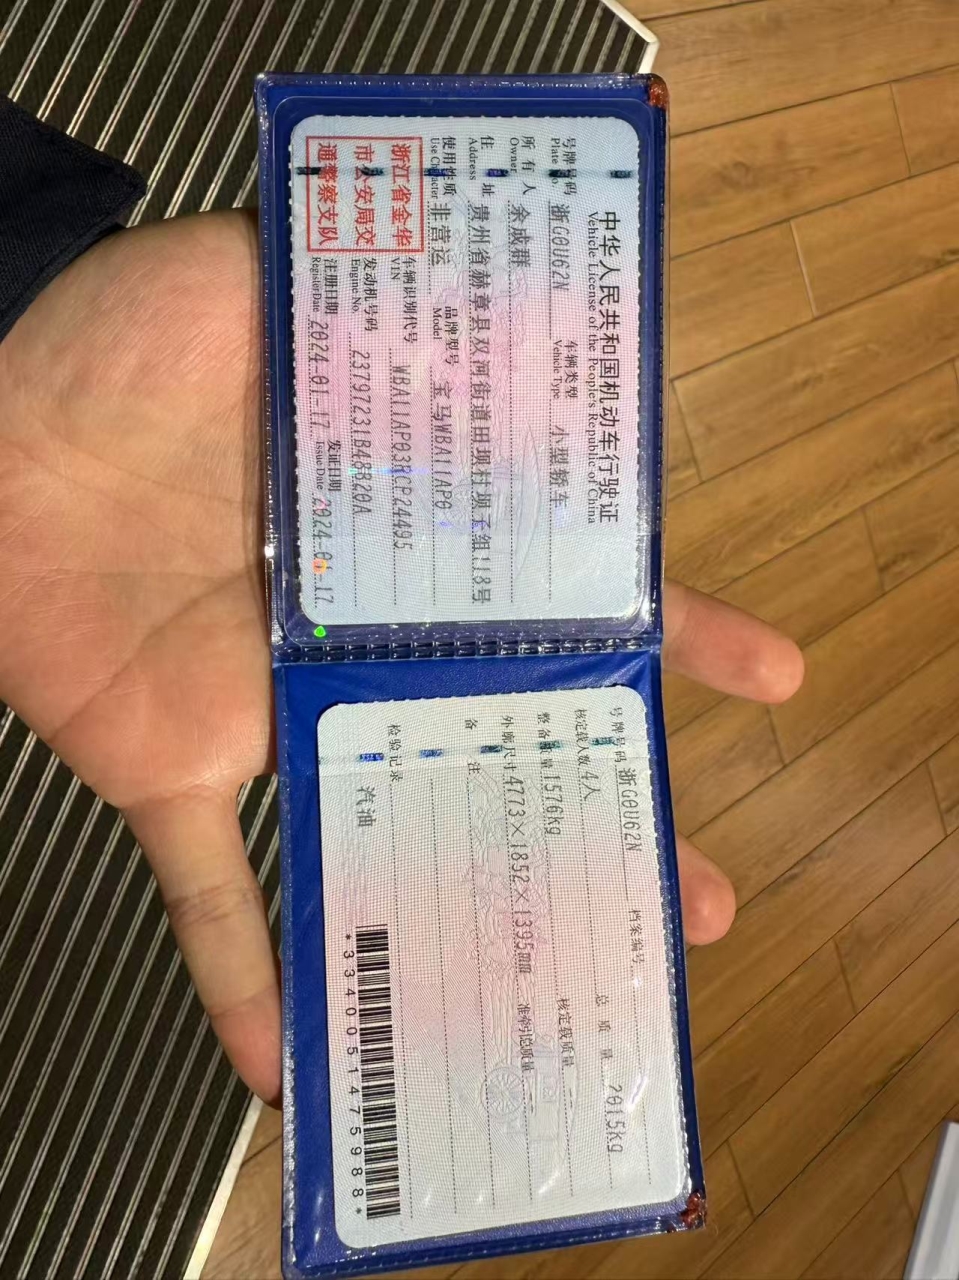 中华人民共和国机动车行驶证
Vehicle License of the People's Republic of China
号牌号码 浙G0U62N 车辆类型 小型轿车
Plate No. Vehicle Type
所有人 余成群
Owner
住址 贵州省赫章县双河街道田坝村坝子组118号
Address
使用性质 非营运 品牌型号 宝马WBA11AP0
Use Character Model
浙江省金华
市公安局交
通警察支队
车辆识别代号 WBA11AP03RCP24495
VIN
发动机号码 23797231B48B20A
Engine No.
注册日期 2024-01-17 发证日期 2024-01-17
Register Date Issue Date
号牌号码 浙G0U62N 档案编号
核定载人数 4人 总质量 2015kg
整备质量 1576kg 核定载质量
外廓尺寸 4773×1852×1395mm 准牵引总质量
备注
检验记录
汽油
*3340051475988*